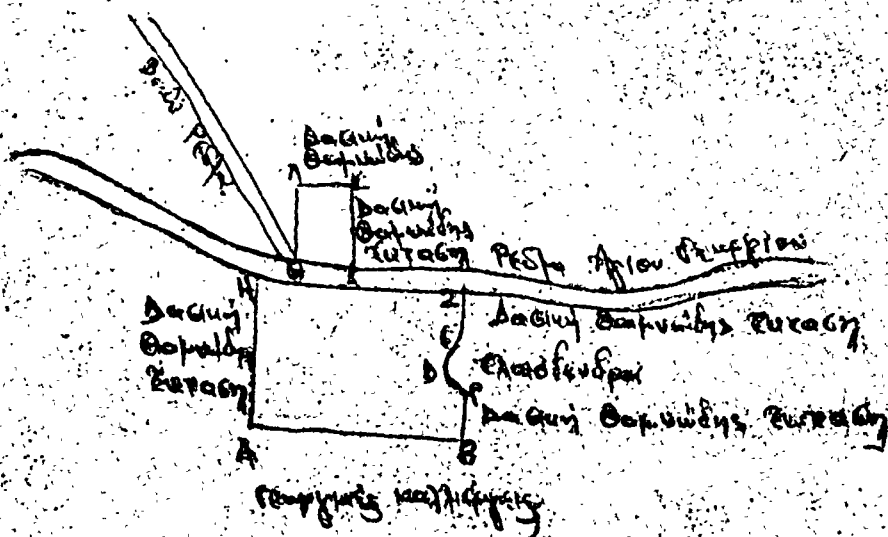 Βαθύ Ρέμα
Δασική
Θαμνώδης
Δασική
Θαμνώδης
Έκταση
Ρέμα Αγίου
Η
Θ
Ζ
Δασική
Θαμνώδης
Έκταση
Δασική Θαμνώδης Έκταση
Ε
Δ
Ελαιόδενδρα
Γ
Δασική Θαμνώδης Έκταση
Α
Β
Γεωργικές καλλιέργειες